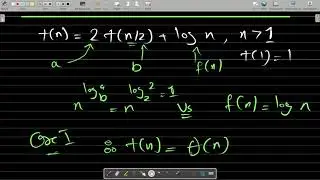 t(n) = 2 t(n/2) + log n , n > 1
t(1) = 1
a b f(n)
n^log_b^a = n^log_2^2 = 1 Vs f(n) = log n
Case I ∴ t(n) = θ(n)